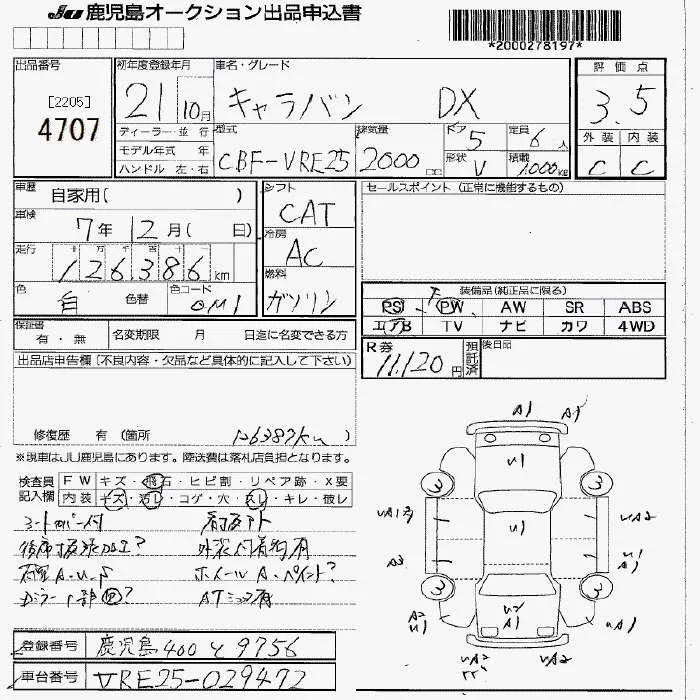 JU 鹿児島オークション出品申込書
*2000278197*
出品番号
[2205]
4707
初年度登録年月
21 10月
車名・グレード
キャラバン DX
評価点
3.5
外装 内装
C C
ディーラー・並行
モデル年式 年
ハンドル 左・右
型式
CBF-VRE25
排気量
2000 cc
ドア
5
形状
V
定員
6人
積載
1,000KG
車歴
自家用( )
車検
7年 12月( 日)
走行
126386 km
色
白 色替
色コード
シフト
CAT
冷房
AC
燃料
ガソリン
セールスポイント (正常に機能するもの)
装備品(純正品に限る)
PS PW AW SR ABS
エアB TV ナビ カワ 4WD
R券
11,120円
預託済
後日品
保証書
有・無
名変期限 月 日迄に名変できる方
出品店申告欄(不良内容・欠品など具体的に記入して下さい)
修復歴 有 (箇所
126387km
※現車はJU鹿児島にあります。陸送費は落札店負担となります。
検査員記入欄
FW キズ・飛石・ヒビ割・リペア跡・X要
内装 キズ・汚レ・コゲ・穴・スレ・キレ・破レ
外装付着物有
ホイールA・ペイント?
A1
U1
U1
U2
A1
3
3
3
3
UA2
A3
U1
A1
A2
U1
UA1
UA2
登録番号 鹿児島 400 く 9756
車台番号 VRE25-029472